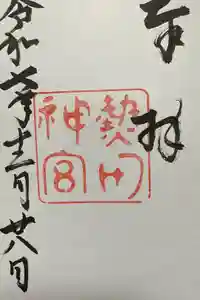 奉拝
熱田
神宮
令和 年十二月廿八日